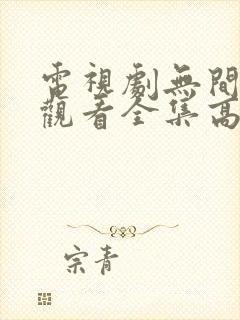 電視劇無間
觀看全集高
宗青